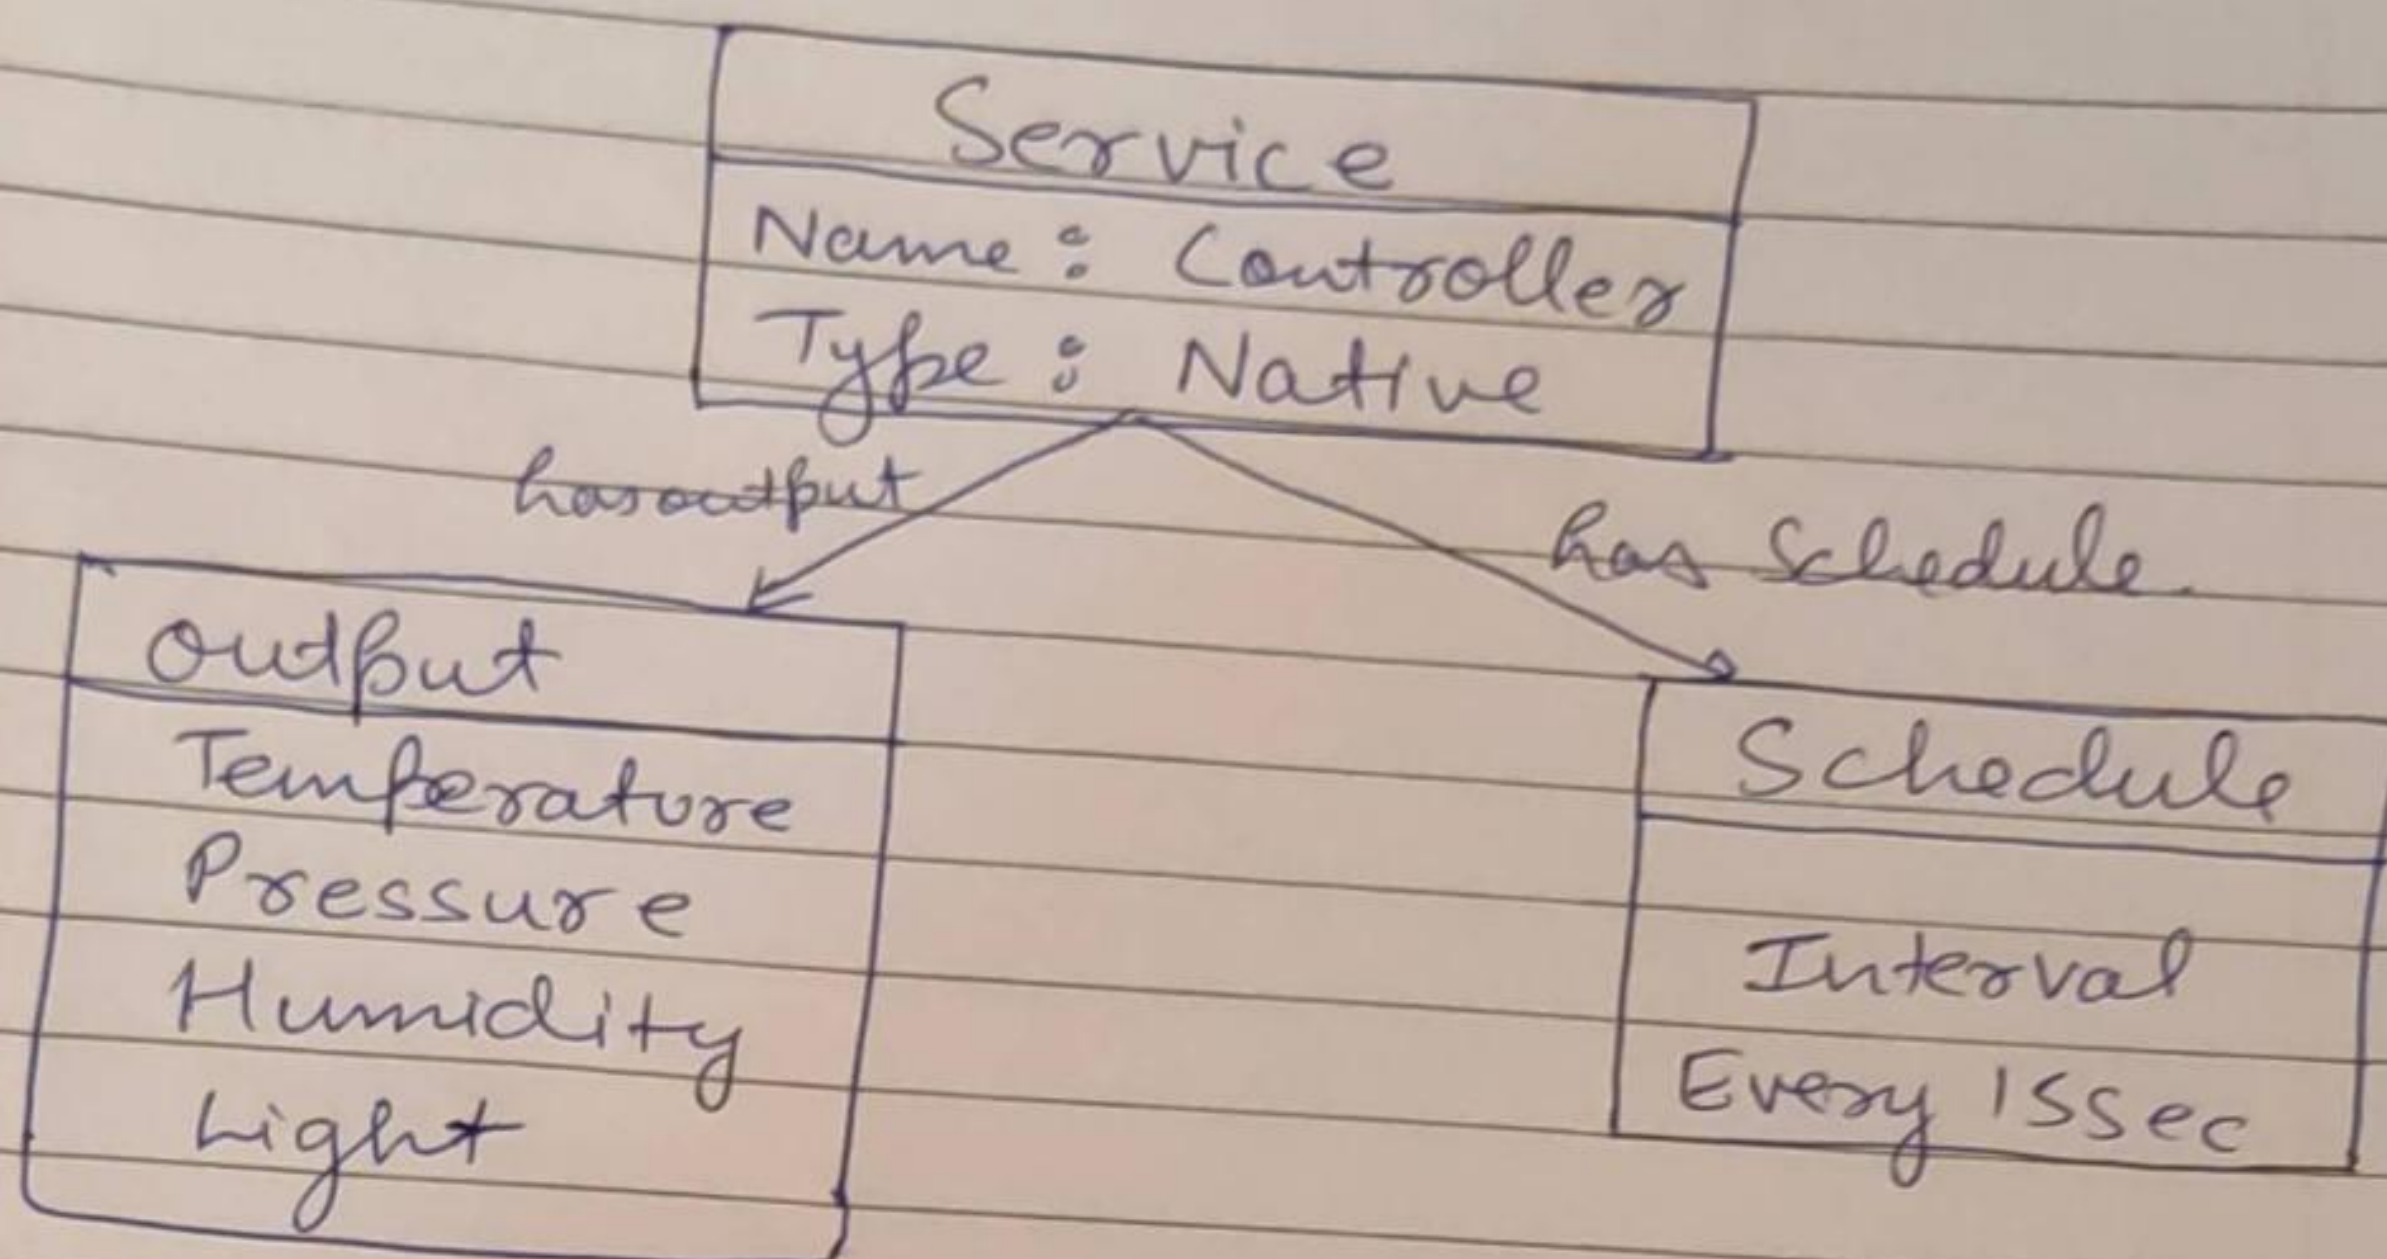 Service
Name: Controller
Type: Native
hasoutput
has Schedule
output
Temperature
Pressure
Humidity
Light
Schedule
Interval
Every 15sec